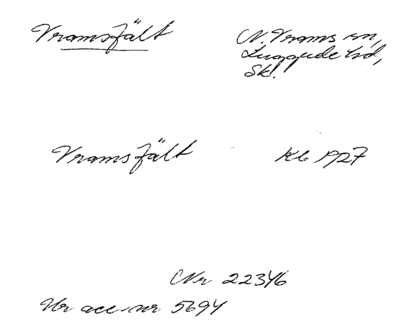 Vramsfält
N. Vrams sn,
Luggude hd,
Sk.
Vramsfält Kb 1927
Nr 22346
Ur acc. nr 5694